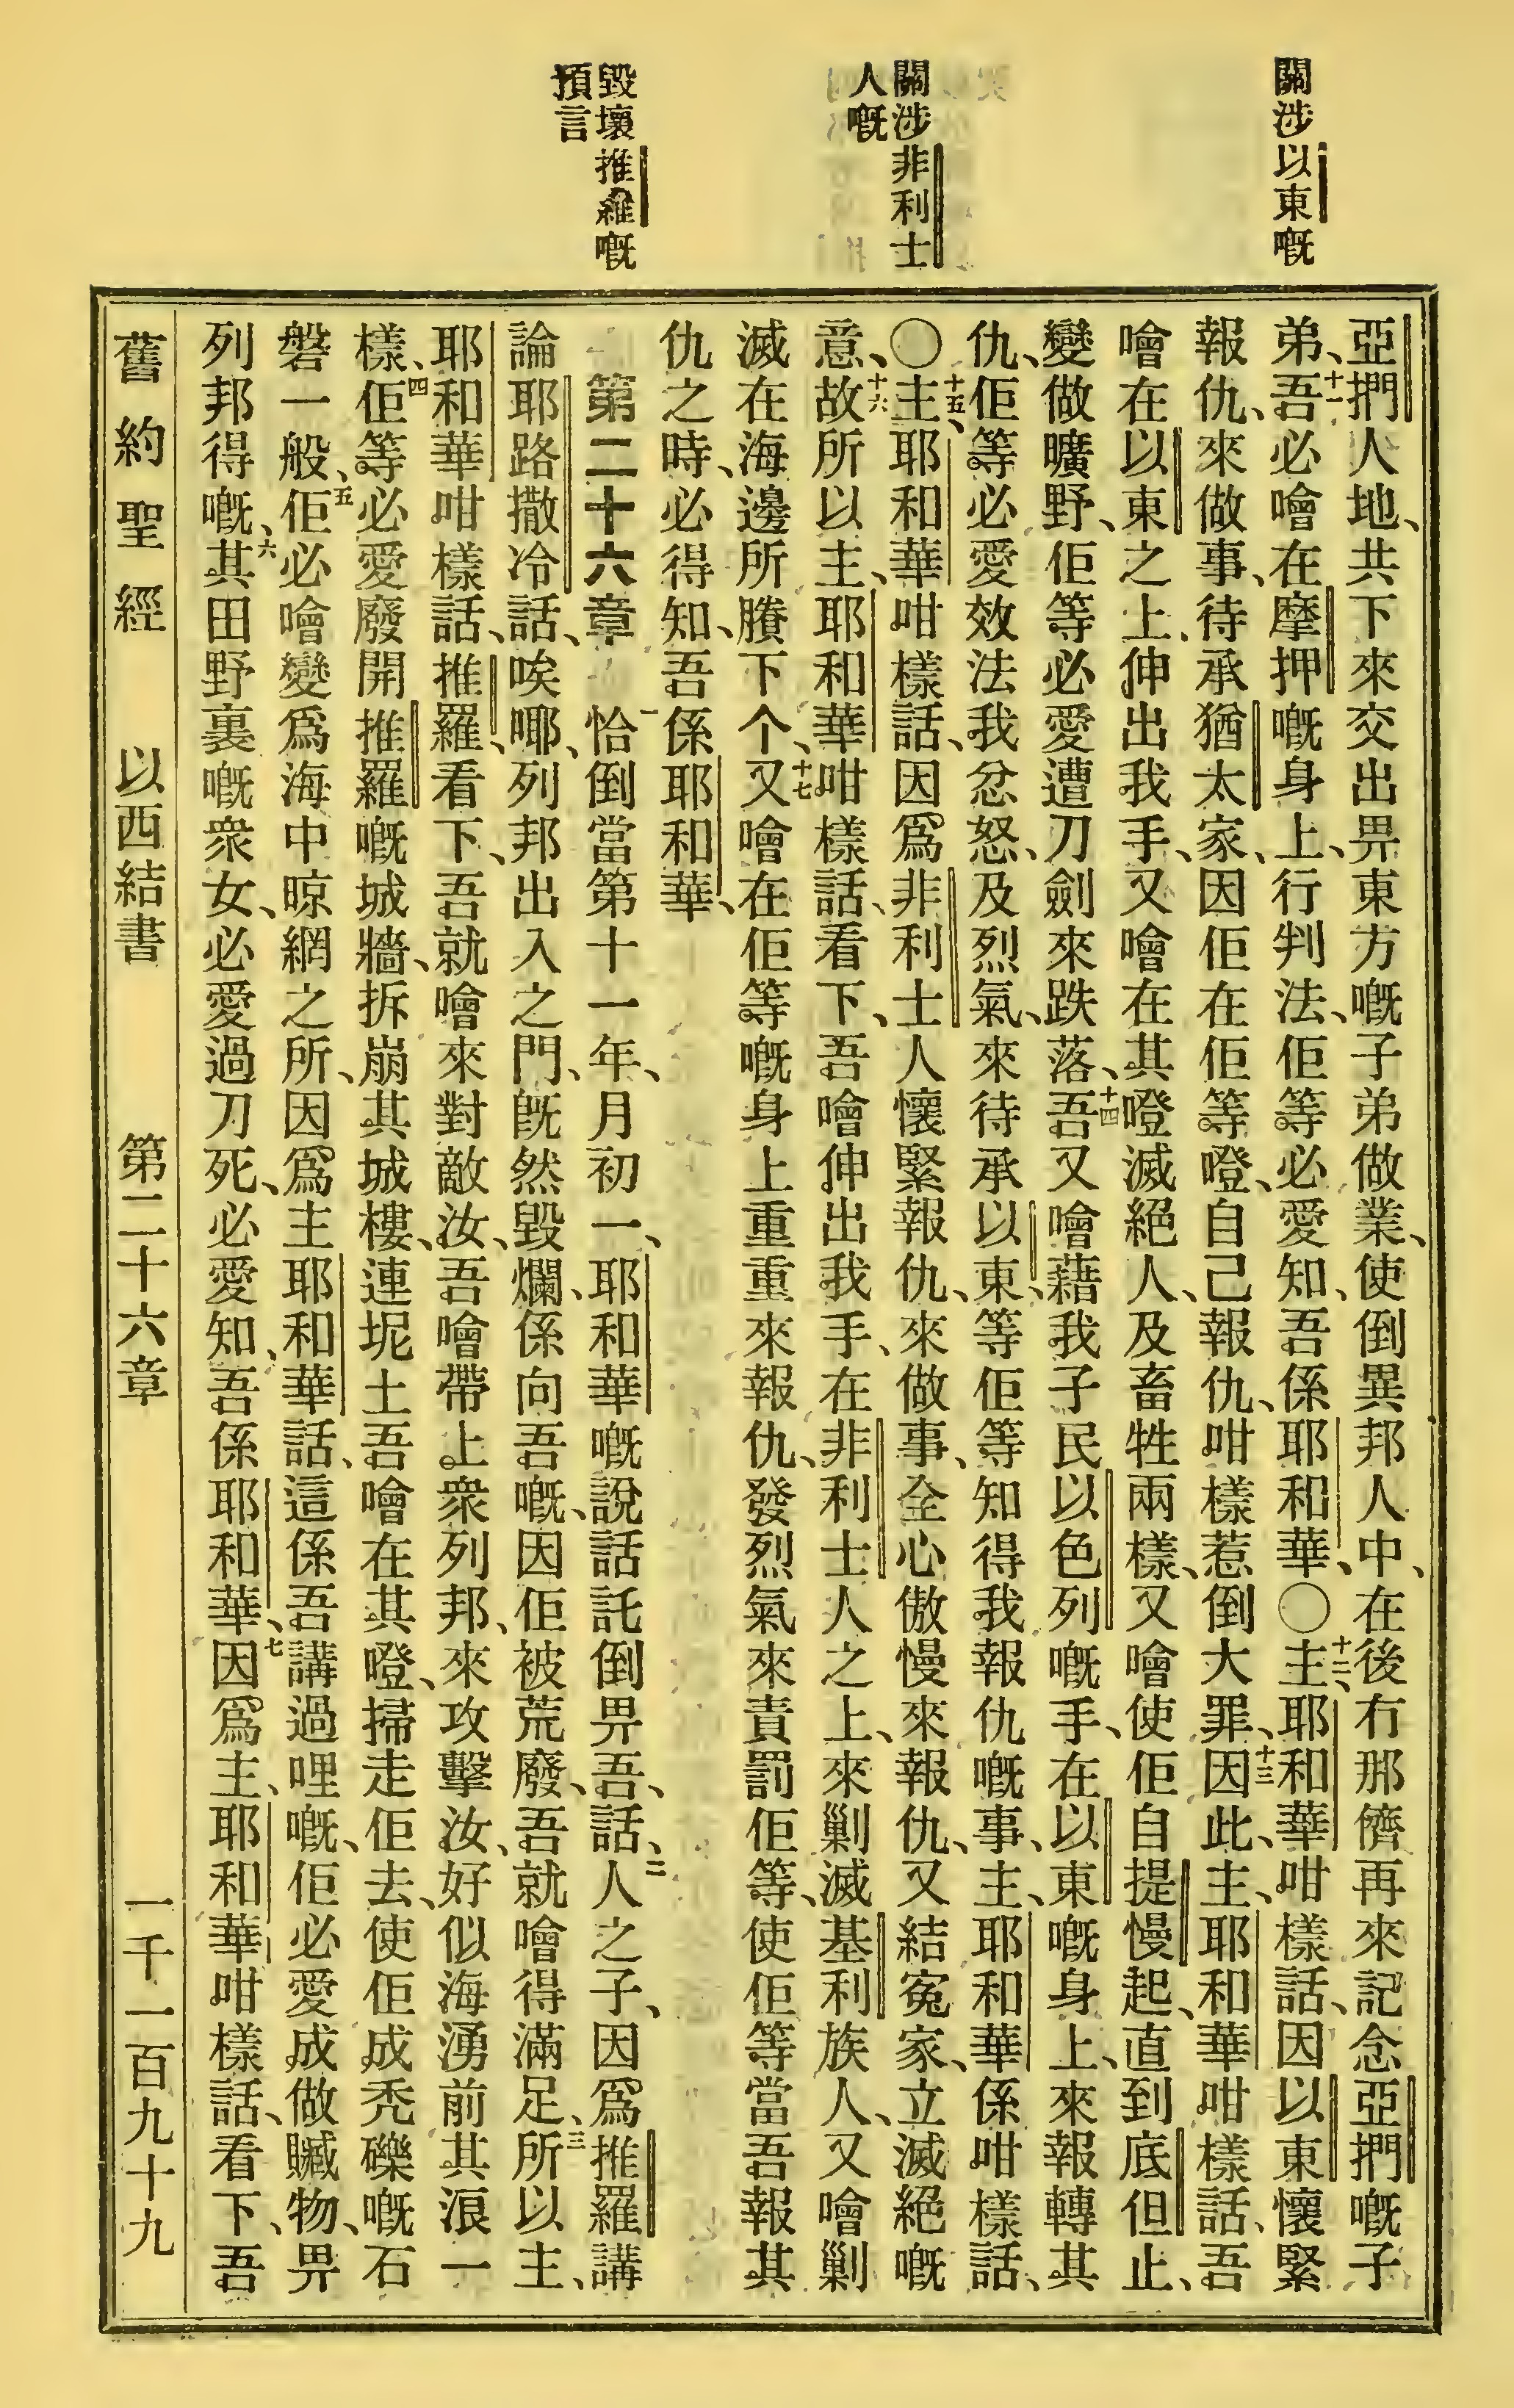 關涉以東嘅
關涉非利士
人嘅
毀壞推羅嘅
預言
亞捫人地、共下來交出畀東方嘅子弟做業、使倒異邦人中、在後冇那儕再來記念亞捫嘅子
弟、十一吾必噲在摩押嘅身上、行判法、佢等必愛知、吾係耶和華、〇十二主、耶和華咁樣話、因以東懷緊
報仇、來做事、待承猶太家、因佢在佢等嶝、自己報仇、咁樣惹倒大罪、十三因此、主、耶和華咁樣話、吾
噲在以東之上、伸出我手、又噲在其嶝滅絕人、及畜牲兩樣、又噲使佢自提慢起、直到底但止、
變做曠野、佢等必愛遭刀劍來跌落、十四吾又噲藉我子民以色列嘅手、在以東嘅身上、來報轉其
仇、佢等必愛效法我忿怒、及烈氣、來待承以東、等佢等知得我報仇嘅事、主、耶和華係咁樣話、
〇十五主、耶和華咁樣話、因爲非利士人懷緊報仇、來做事、全心傲慢來報仇、又結寃家、立滅絕嘅
意、十六故所以主、耶和華咁樣話、看下、吾噲伸出我手、在非利士人之上、來剿滅基利族人、又噲剿
滅在海邊所賸下个、十七又噲在佢等嘅身上重重來報仇、發烈氣來責罰佢等、使佢等當吾報其
仇之時、必得知、吾係耶和華、
第二十六章 一恰倒當第十一年、月初一、耶和華嘅說話託倒畀吾、話、二人之子、因爲推羅講
論耶路撒冷話、唉㖿、列邦出入之門、旣然毀爛、係向吾嘅、因佢被荒廢、吾就噲得滿足、三所以主、
耶和華咁樣話、推羅、看下、吾就噲來對敵汝、吾噲帶上衆列邦、來攻擊汝、好似海湧前其浪一
樣、四佢等必愛廢開推羅嘅城牆、拆崩其城樓、連坭土吾噲在其嶝、掃走佢去、使佢成禿礫嘅石
磐一般、五佢必噲變爲海中晾網之所、因爲主耶和華話、這係吾講過哩嘅、佢必愛成做贓物、畀
列邦得嘅、六其田野裏嘅衆女、必愛過刀死、必愛知、吾係耶和華、七因爲主、耶和華咁樣話、看下、吾
舊約聖經 以西結書 第二十六章 一千一百九十九